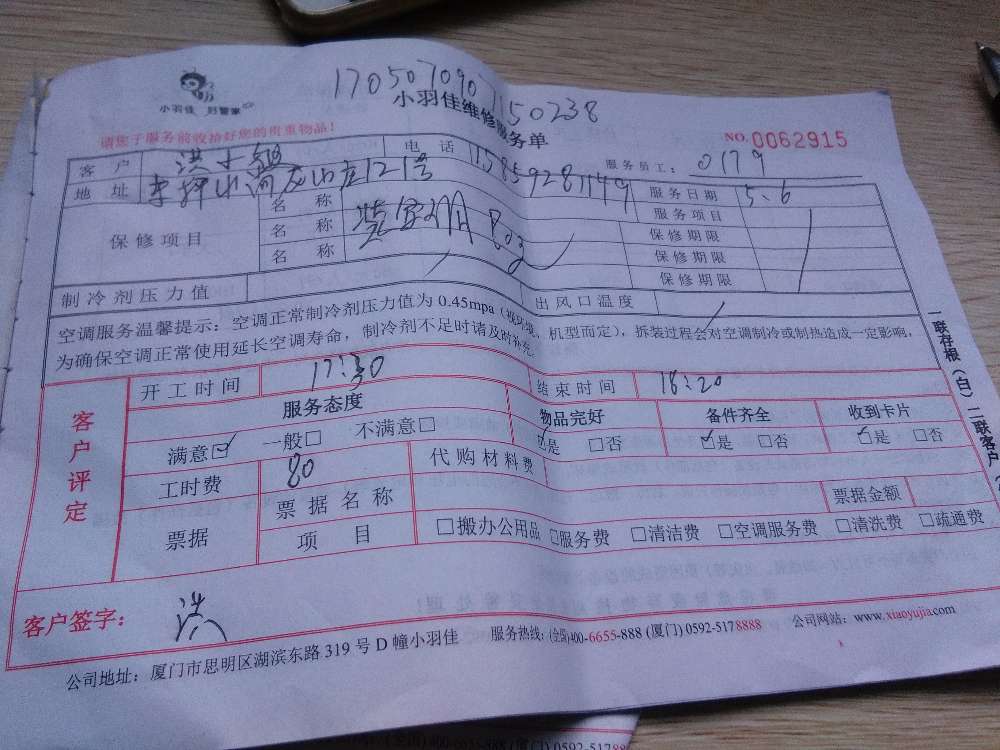 170507090
150238
小羽佳 好管家
小羽佳维修服务单
请您于服务前收拾好您的贵重物品!
NO.0062915
客户 洪小姐 电话 15859281149 服务员工: 0179
地址 山庄121号 服务日期 5.6
保修项目 名称 服务项目
名称 保修期限
名称 保修期限
保修期限
制冷剂压力值 出风口温度
空调服务温馨提示:空调正常制冷剂压力值为0.45mpa(视环境、机型而定),拆装过程会对空调制冷或制热造成一定影响,
为确保空调正常使用延长空调寿命,制冷剂不足时请及时补充。
一联存根(白)二联客户
客户评定
开工时间 17:30 结束时间 18:20
服务态度 物品完好 备件齐全 收到卡片
满意☑ 一般□ 不满意□ ☑是 □否 ☑是 □否 ☑是 □否
工时费 80 代购材料费
票据 票据名称 票据金额
项目 □搬办公用品 □服务费 □清洁费 □空调服务费 □清洗费 □疏通费
客户签字: 洪
公司地址:厦门市思明区湖滨东路319号D幢小羽佳 服务热线:(全国)400-6655-888 (厦门)0592-5178888 公司网站:www.xiaoyujia.com